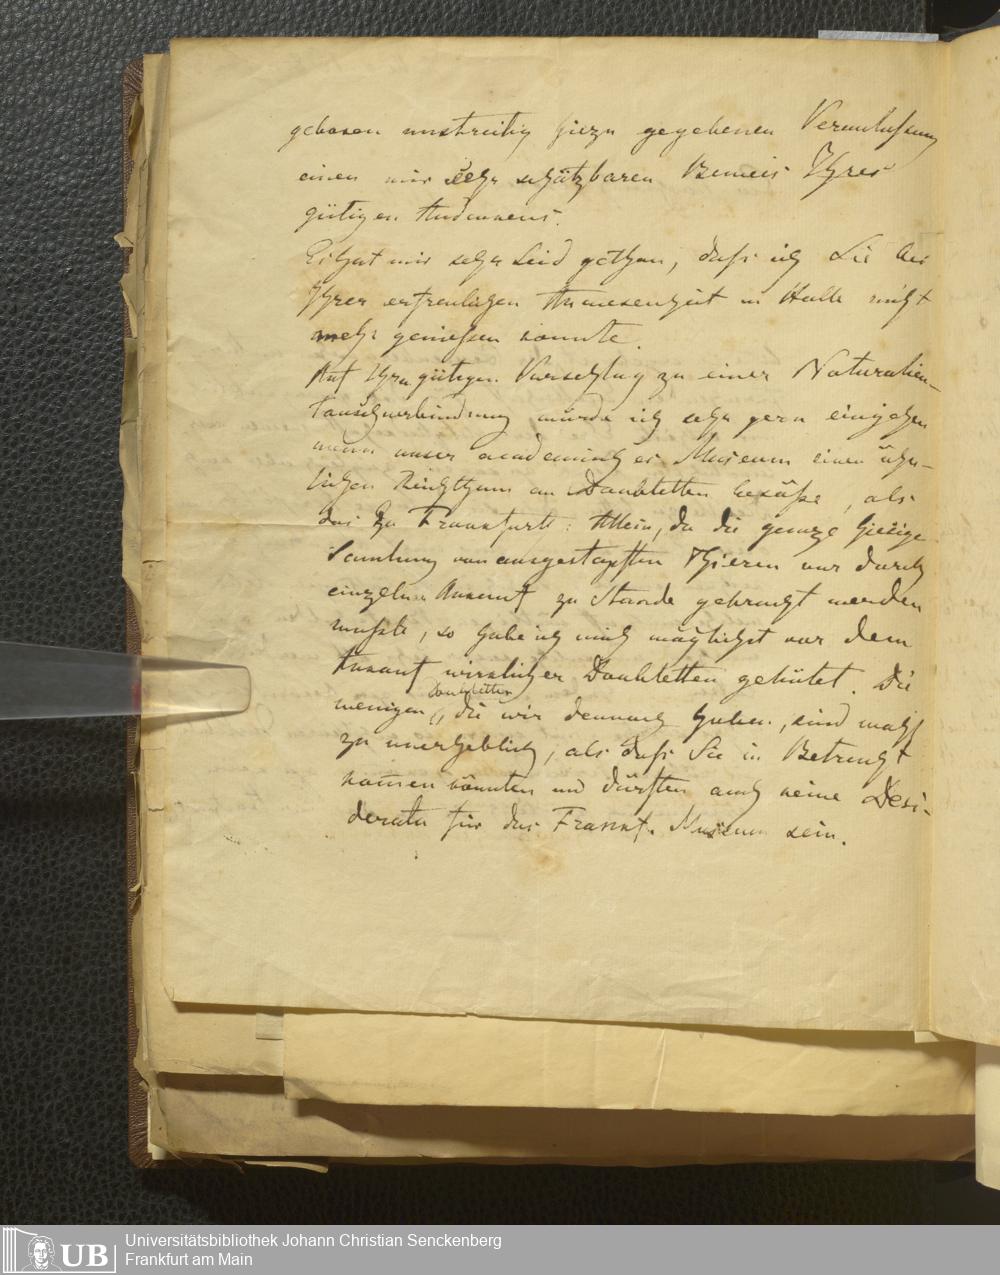 gebaren unstreitig hiezu gegebenen Veranlassung
einen mir sehr schätzbaren Beweis Ihres
gütigen Andenkens.
Es hat mir sehr Leid gethan, daß ich Sie bei
Ihrer erfreulichen Anwesenheit in Halle nicht
mehr genießen konnte.
Auf Ihren gütigen Vorschlag zu einer Naturalien-
tauschverbindung würde ich sehr gern eingehen
wenn unser academisches Museum einen ähn-
lichen Reichthum an Doubletten besäße, als
das zu Frankfurth: Allein, da die ganze hiesige
Samlung von ausgestopften Thieren nur durch
einzelnen Ankauf zu Stande gebracht werden
mußte, so habe ich mich möglichst vor dem
Ankauf wirklicher Doubletten gehütet. Die
wenigen Doubletten, die wir dennoch haben, sind wohl
zu unerheblich, als daß Sie in Betracht
kom̄en könnten und dürften auch keine Desi-
derata für das Frankf. Museum sein.
Universitätsbibliothek Johann Christian Senckenberg
Frankfurt am Main
UB